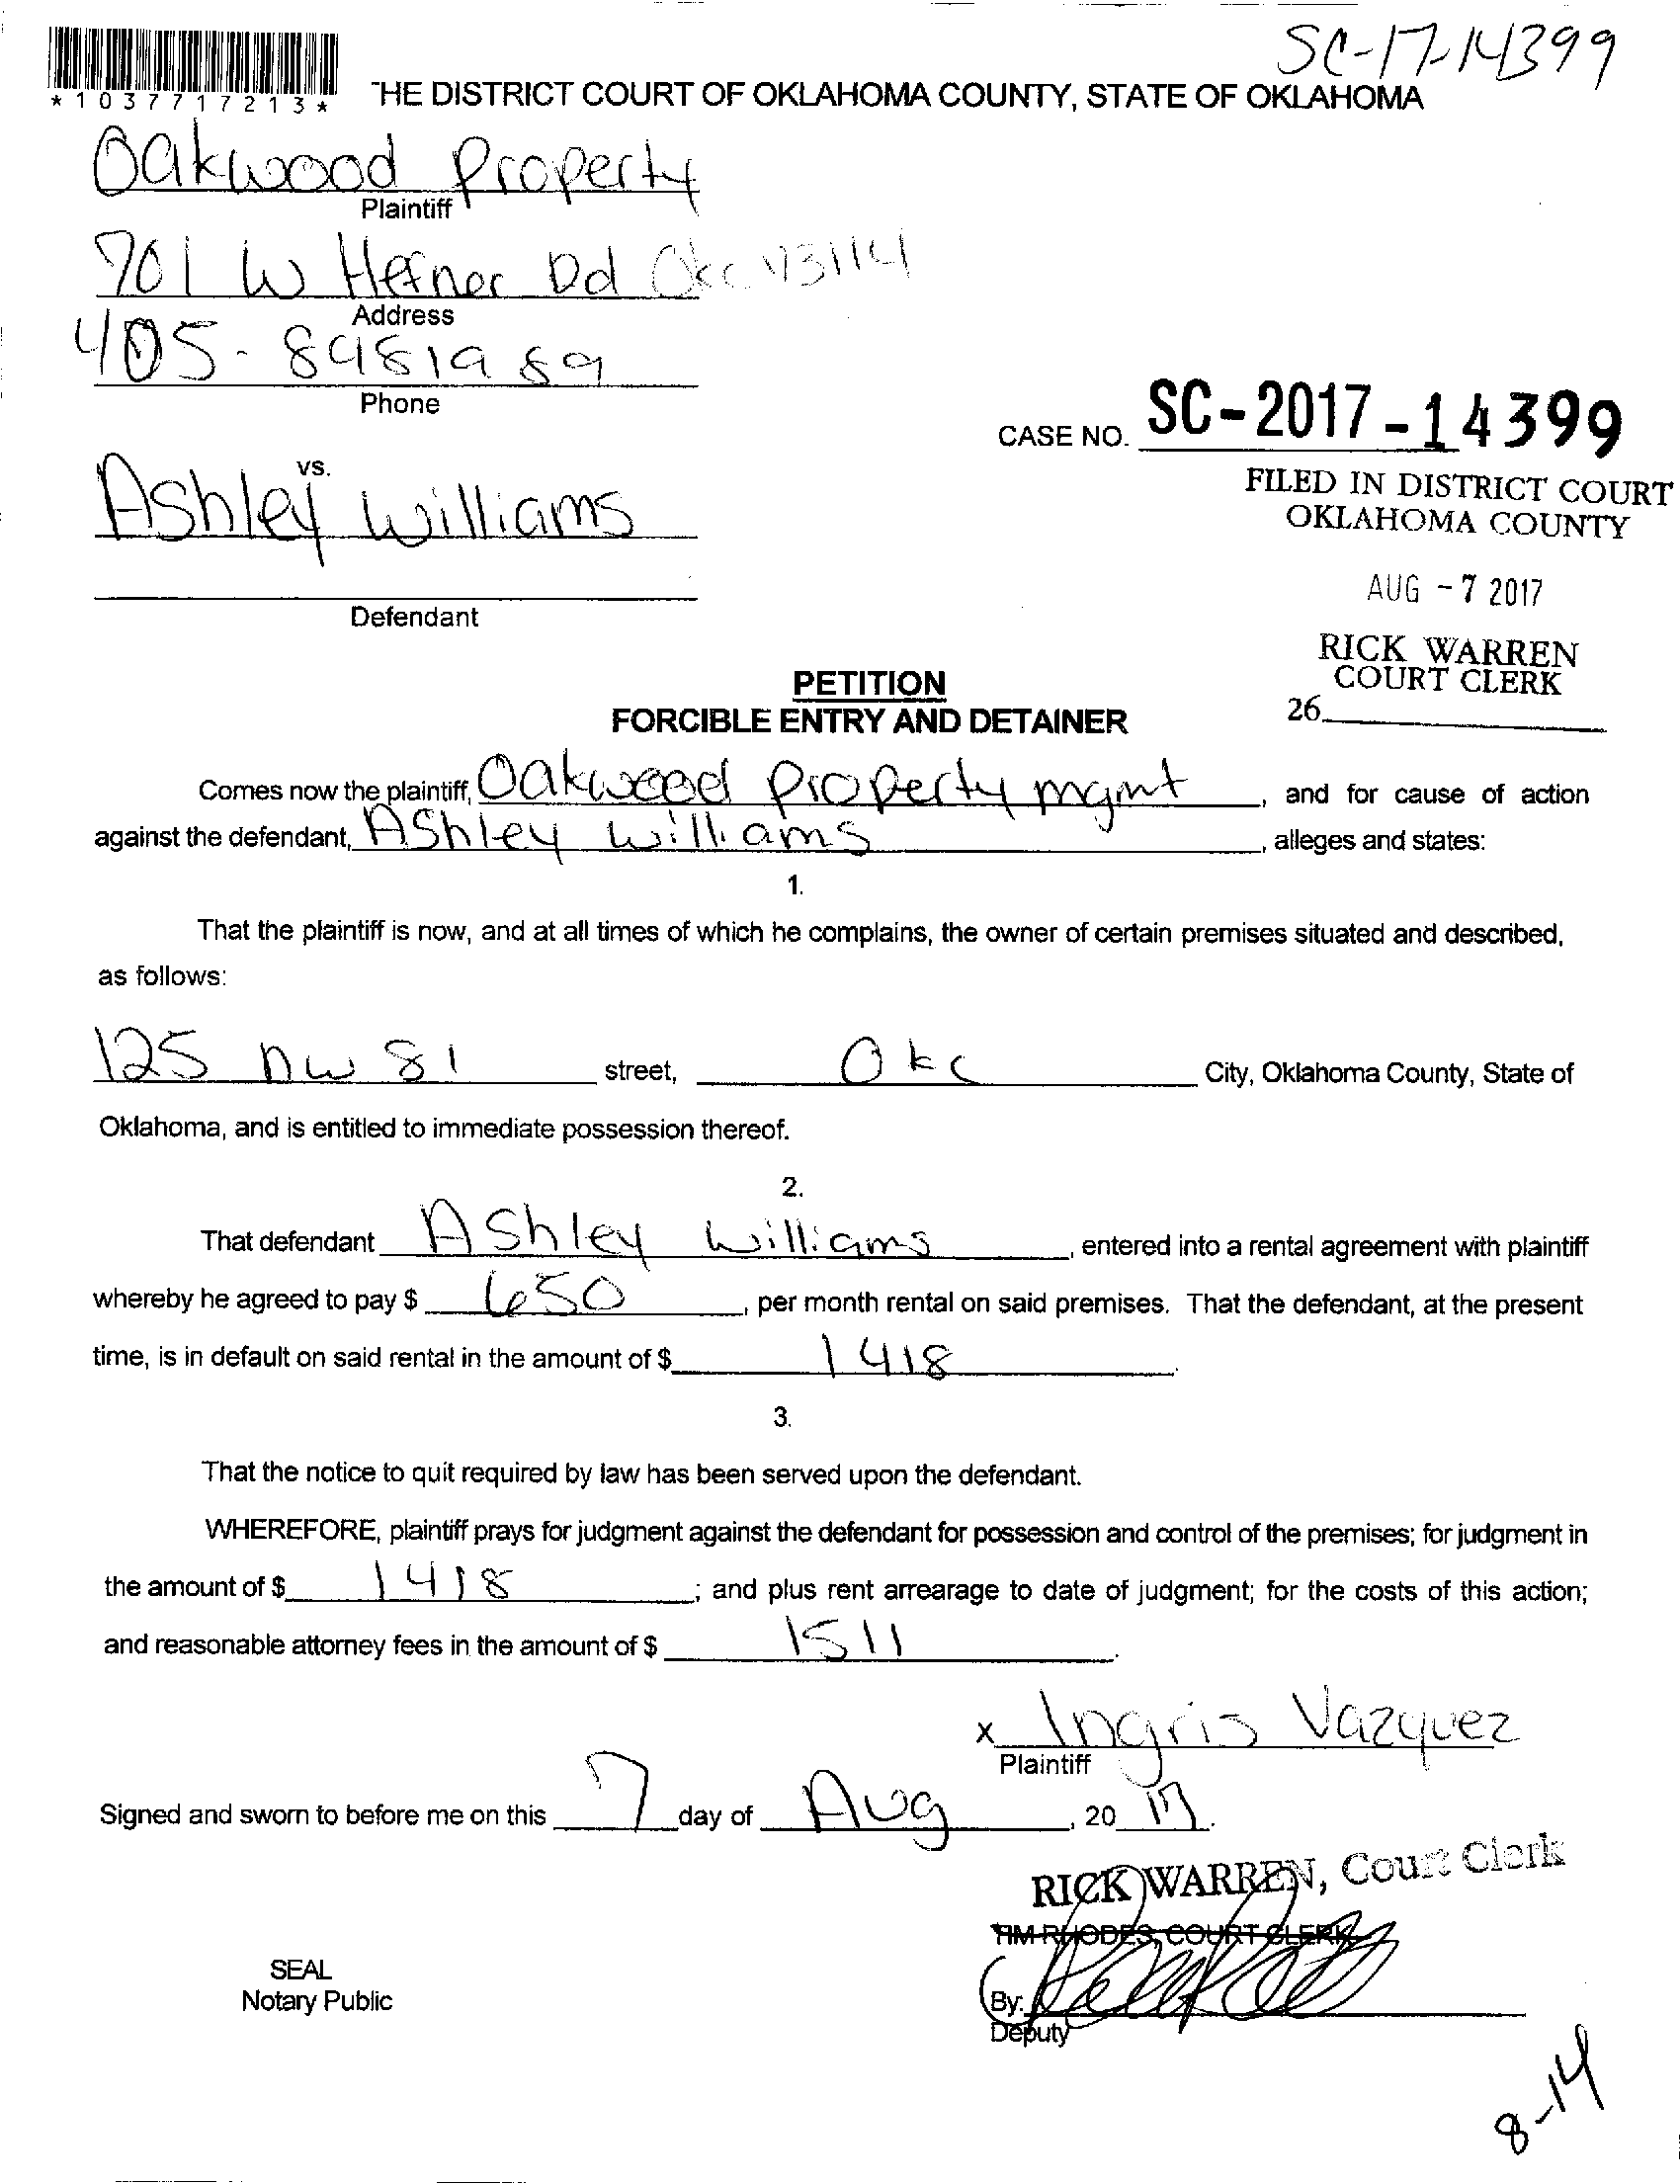 SC-17-14399
*1037717213*
THE DISTRICT COURT OF OKLAHOMA COUNTY, STATE OF OKLAHOMA
Oakwood Property
Plaintiff
701 W Hefner Rd Okc 73114
Address
405-8481989
Phone
CASE NO. SC-2017-14399
vs.
Ashley Williams
FILED IN DISTRICT COURT
OKLAHOMA COUNTY
AUG -7 2017
Defendant
RICK WARREN
COURT CLERK
26
PETITION
FORCIBLE ENTRY AND DETAINER
Comes now the plaintiff, Oakwood Property mgmt, and for cause of action
against the defendant, Ashley Williams, alleges and states:
1.
That the plaintiff is now, and at all times of which he complains, the owner of certain premises situated and described,
as follows:
125 NW 81 street, Okc City, Oklahoma County, State of
Oklahoma, and is entitled to immediate possession thereof.
2.
That defendant Ashley Williams, entered into a rental agreement with plaintiff
whereby he agreed to pay $ 650, per month rental on said premises. That the defendant, at the present
time, is in default on said rental in the amount of $ 1418.
3.
That the notice to quit required by law has been served upon the defendant.
WHEREFORE, plaintiff prays for judgment against the defendant for possession and control of the premises; for judgment in
the amount of $ 1418; and plus rent arrearage to date of judgment; for the costs of this action;
and reasonable attorney fees in the amount of $ 1511.
x Ingris Vazquez
Plaintiff
Signed and sworn to before me on this 7 day of Aug, 20 17.
RICK WARREN, Court Clerk
TIM RHODES, COURT CLERK
SEAL
Notary Public
By:
Deputy
8-14